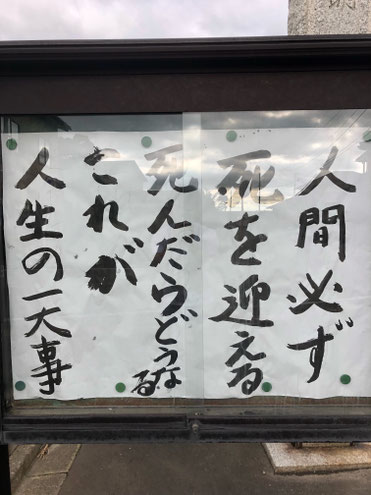 人間必ず
死を迎える
死んだらどうなる
これが
人生の一大事